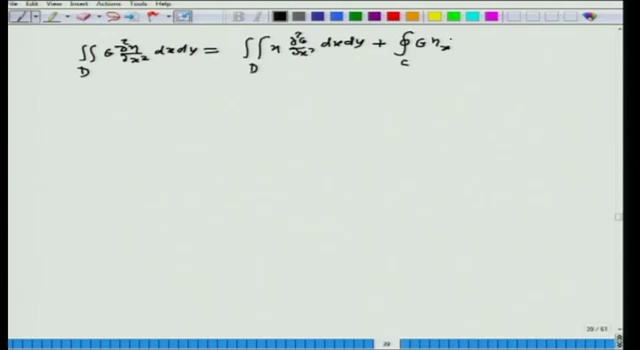 View Insert Actions Tools Help
∬_D G ∂²η/∂x² dxdy = ∬_D η ∂²G/∂x² dxdy + ∮_C G η_x
29 / 61
29